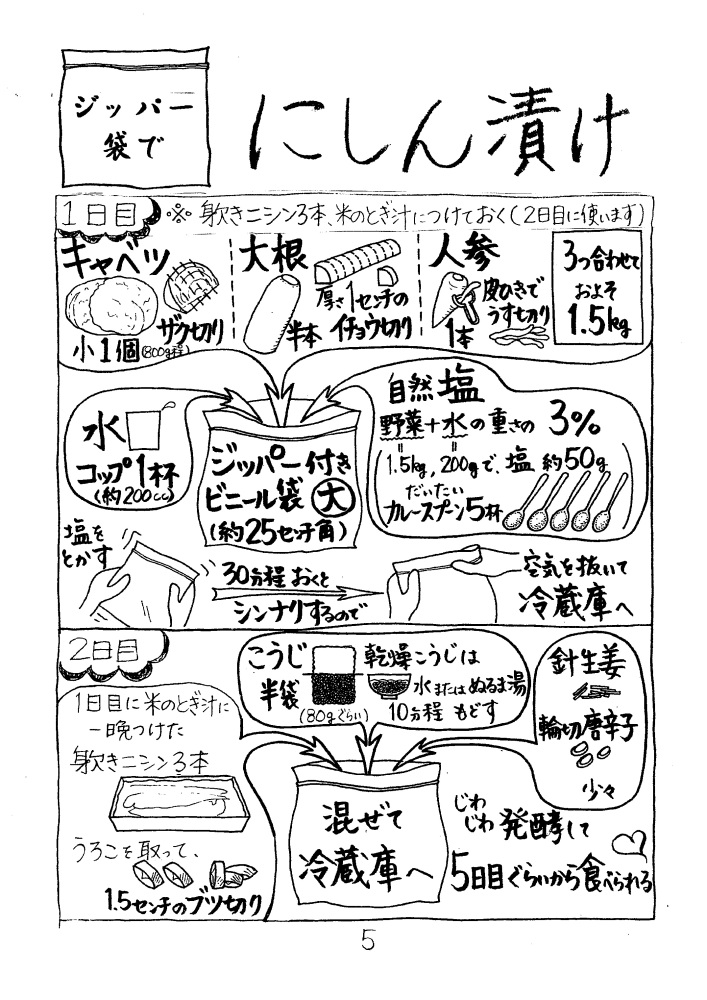 ジッパー
袋で
にしん漬け
1日目
※身欠きニシン3本、米のとぎ汁につけておく(2日目に使います)
キャベツ
ザク切り
小1個(800g程)
大根
厚さ1センチの
半本 イチョウ切り
人参
皮ひきで
うす切り
1本
3つ合わせて
およそ
1.5kg
水
コップ1杯
(約200cc)
ジッパー付き
ビニール袋 大
(約25センチ角)
自然塩
野菜+水の重さの 3%
1.5kg, 200gで、塩 約50g
だいたい
カレースプーン5杯
塩を
とかす
30分程おくと
シンナリするので
空気を抜いて
冷蔵庫へ
2日目
1日目に米のとぎ汁に
一晩つけた
身欠きニシン3本
うろこを取って、
1.5センチのブツ切り
こうじ
半袋
(80gぐらい)
乾燥こうじは
水またはぬるま湯
10分程 もどす
針生姜
輪切唐辛子
少々
混ぜて
冷蔵庫へ
じわ
じわ 発酵して
5日目ぐらいから食べられる
5